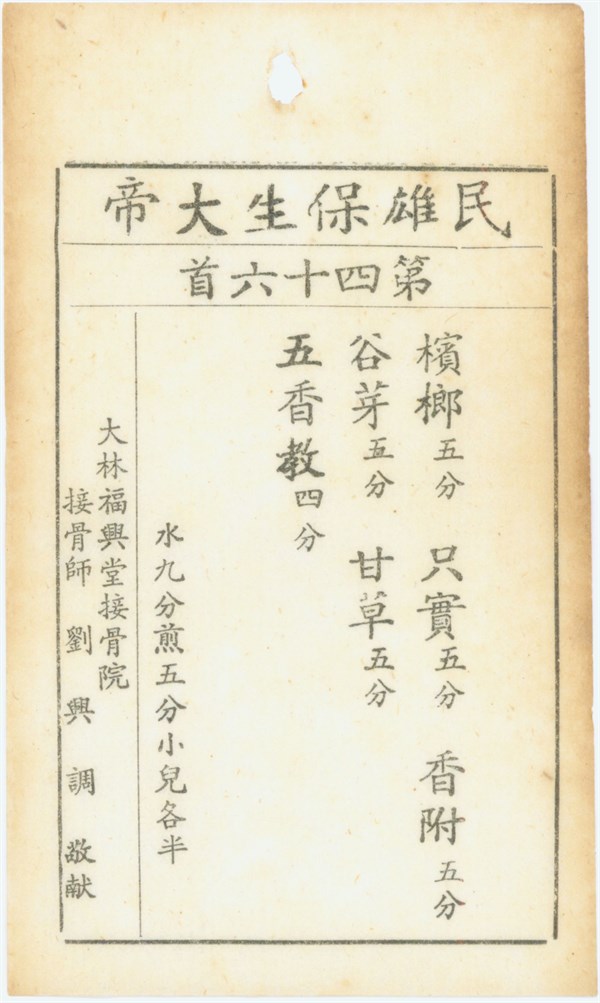 民雄保生大帝
第四十六首
檳榔五分 只實五分 香附五分
谷芽五分 甘草五分
五香教四分
水九分煎五分小兒各半
大林福興堂接骨院
接骨師 劉興調 敬献